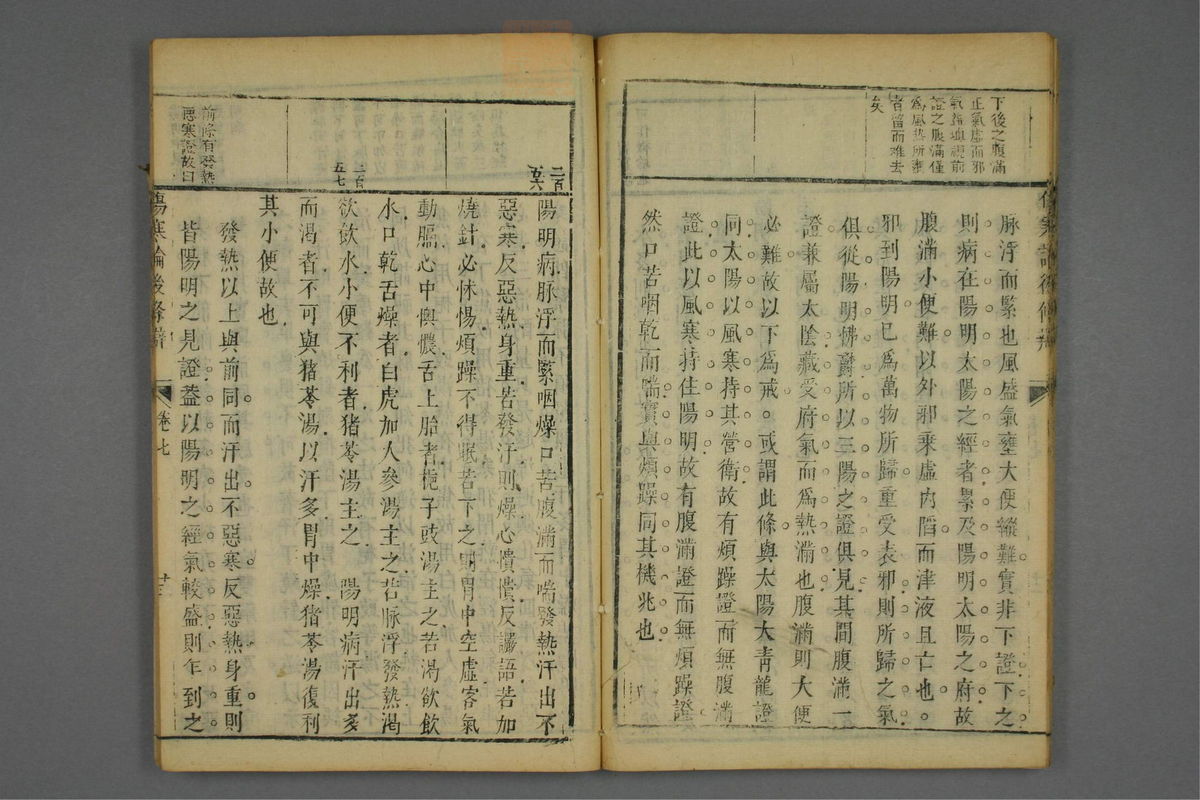 下後之腹滿
正氣虛而邪
氣益壅視前
證之腹滿僅
爲風熱所壅
者留而難去
矣
傷寒論後條辨
脉浮而緊也風盛氣壅大便縱難實非下證下之
則病在陽明太陽之經者累及陽明太陽之府故
腹滿小便難以外邪乘虛內陷而津液且亡也
邪到陽明已爲萬物所歸重受表邪則所歸之氣
俱從陽明怫鬱所以三陽之證俱見其間腹滿一
證兼屬太陰藏受府氣而爲熱滿也腹滿則大便
必難故以下爲戒。或謂此條與太陽大青龍證
同太陽以風寒持其營衛故有煩躁證而無腹滿
證此以風寒持住陽明故有腹滿證而無煩躁證
然口苦咽乾而喘實與煩躁同其機兆也
二百
五六
陽明病脉浮而緊咽燥口苦腹滿而喘發熱汗出不
惡寒反惡熱身重若發汗則燥心憒憒反讝語若加
燒針必怵惕煩躁不得眠若下之則胃中空虛客氣
動膈心中懊憹舌上胎者梔子豉湯主之若渴欲飲
水口乾舌燥者白虎加人參湯主之若脉浮發熱渴
二百
五七
欲飲水小便不利者猪苓湯主之 陽明病汗出多
而渴者不可與猪苓湯以汗多胃中燥猪苓湯復利
其小便故也
前條有發熱
惡寒證故曰
發熱以上與前同而汗出不惡寒反惡熱身重則
皆陽明之見證葢以陽明之經氣較盛則乍到之
傷寒論後條辨
卷七
廿三